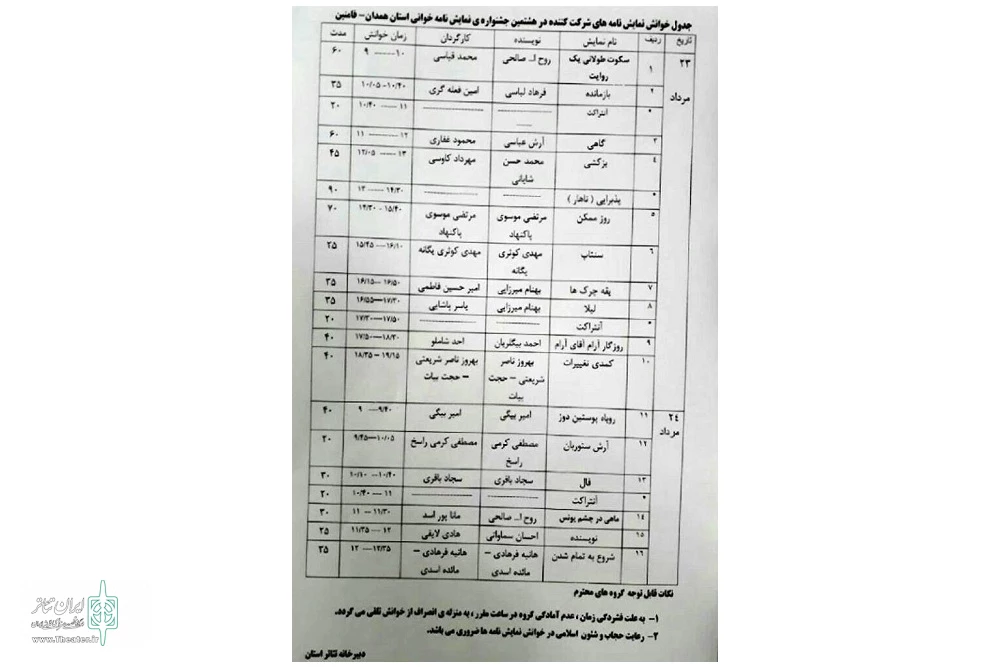 جدول خوانش نمایش نامه های شرکت کننده در هشتمین جشنواره ی نمایش نامه خوانی استان همدان - فامنین
تاریخ ردیف نام نمایش نویسنده کارگردان زمان خوانش مدت
۲۳ مرداد ۱ سکوت طولانی یک روایت روح ا... صالحی محمد قیاسی ۱۰ ------ ۹ ۶۰
۲ بازمانده فرهاد لباسی امین فعله گری ۱۰/۴۰-۱۰/۰۵ ۳۵
* آنتراکت ۱۱ ----- ۱۰/۴۰ ۲۰
۳ گاهی آرش عباسی محمود غفاری ۱۲ ------- ۱۱ ۶۰
۴ بزکشی محمد حسن شایانی مهرداد کاوسی ۱۳ ----- ۱۲/۰۵ ۴۵
* پذیرایی ( ناهار ) ۱۴/۳۰ --- ۱۳ ۹۰
۵ روز ممکن مرتضی موسوی پاکنهاد مرتضی موسوی پاکنهاد ۱۵/۴۰ - ۱۴/۳۰ ۷۰
۶ سنتاپ مهدی کوثری یگانه مهدی کوثری یگانه ۱۶/۱۰ --- ۱۵/۴۵ ۲۵
۷ یقه چرک ها بهنام میرزایی امیر حسین فاطمی ۱۶/۵۰ --- ۱۶/۱۵ ۳۵
۸ لیلا بهنام میرزایی یاسر پاشایی ۱۷/۳۰---۱۶/۵۵ ۳۵
* آنتراکت ۱۷/۵۰---۱۷/۳۰ ۲۰
۹ روزگار آرام آقای آرام احمد بیگلریان احد شاملو ۱۸/۳۰---۱۷/۵۰ ۴۰
۱۰ کمدی تغییرات بهروز ناصر شریعتی – حجت بیات بهروز ناصر شریعتی – حجت بیات ۱۹/۱۵ - ۱۸/۳۵ ۴۰
۲۴ مرداد ۱۱ روباه پوستین دوز امیر بیگی امیر بیگی ۹/۴۰---۹ ۴۰
۱۲ آرش ستوربان مصطفی کرمی راسخ مصطفی کرمی راسخ ۱۰/۰۵---۹/۴۵ ۲۰
۱۳ فال سجاد باقری سجاد باقری ۱۰/۴۰ --- ۱۰/۱۰ ۳۰
* آنتراکت ۱۱ --- ۱۰/۴۰ ۲۰
۱۴ ماهی در چشم یونس روح ا... صالحی مانا پور اسد ۱۱/۳۰ --- ۱۱ ۳۰
۱۵ نویسنده احسان سماواتی هادی لایقی ۱۲ --- ۱۱/۳۵ ۲۵
۱۶ شروع به تمام شدن هانیه فرهادی – مائده اسدی هانیه فرهادی – مائده اسدی ۱۲/۳۵ --- ۱۲ ۳۵
نکات قابل توجه گروه های محترم
۱- به علت فشردگی زمان ، عدم آمادگی گروه در ساعت مقرر ، به منزله ی انصراف از خوانش تلقی می گردد.
۲- رعایت حجاب و شئون اسلامی در خوانش نمایش نامه ها ضروری می باشد.
دبیرخانه تئاتر استان
ایران تئاتر
www.Theater.ir